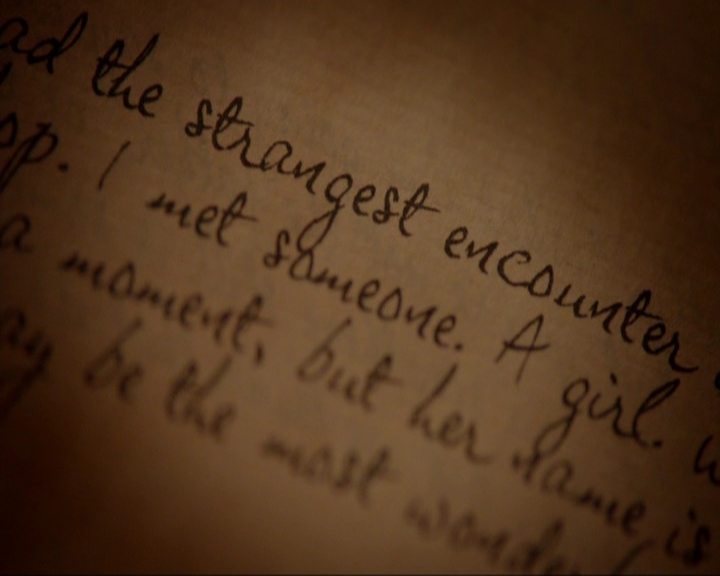 ad the strangest encounter
op. I met someone. A girl. w
a moment, but her name is
ay be the most wonderf